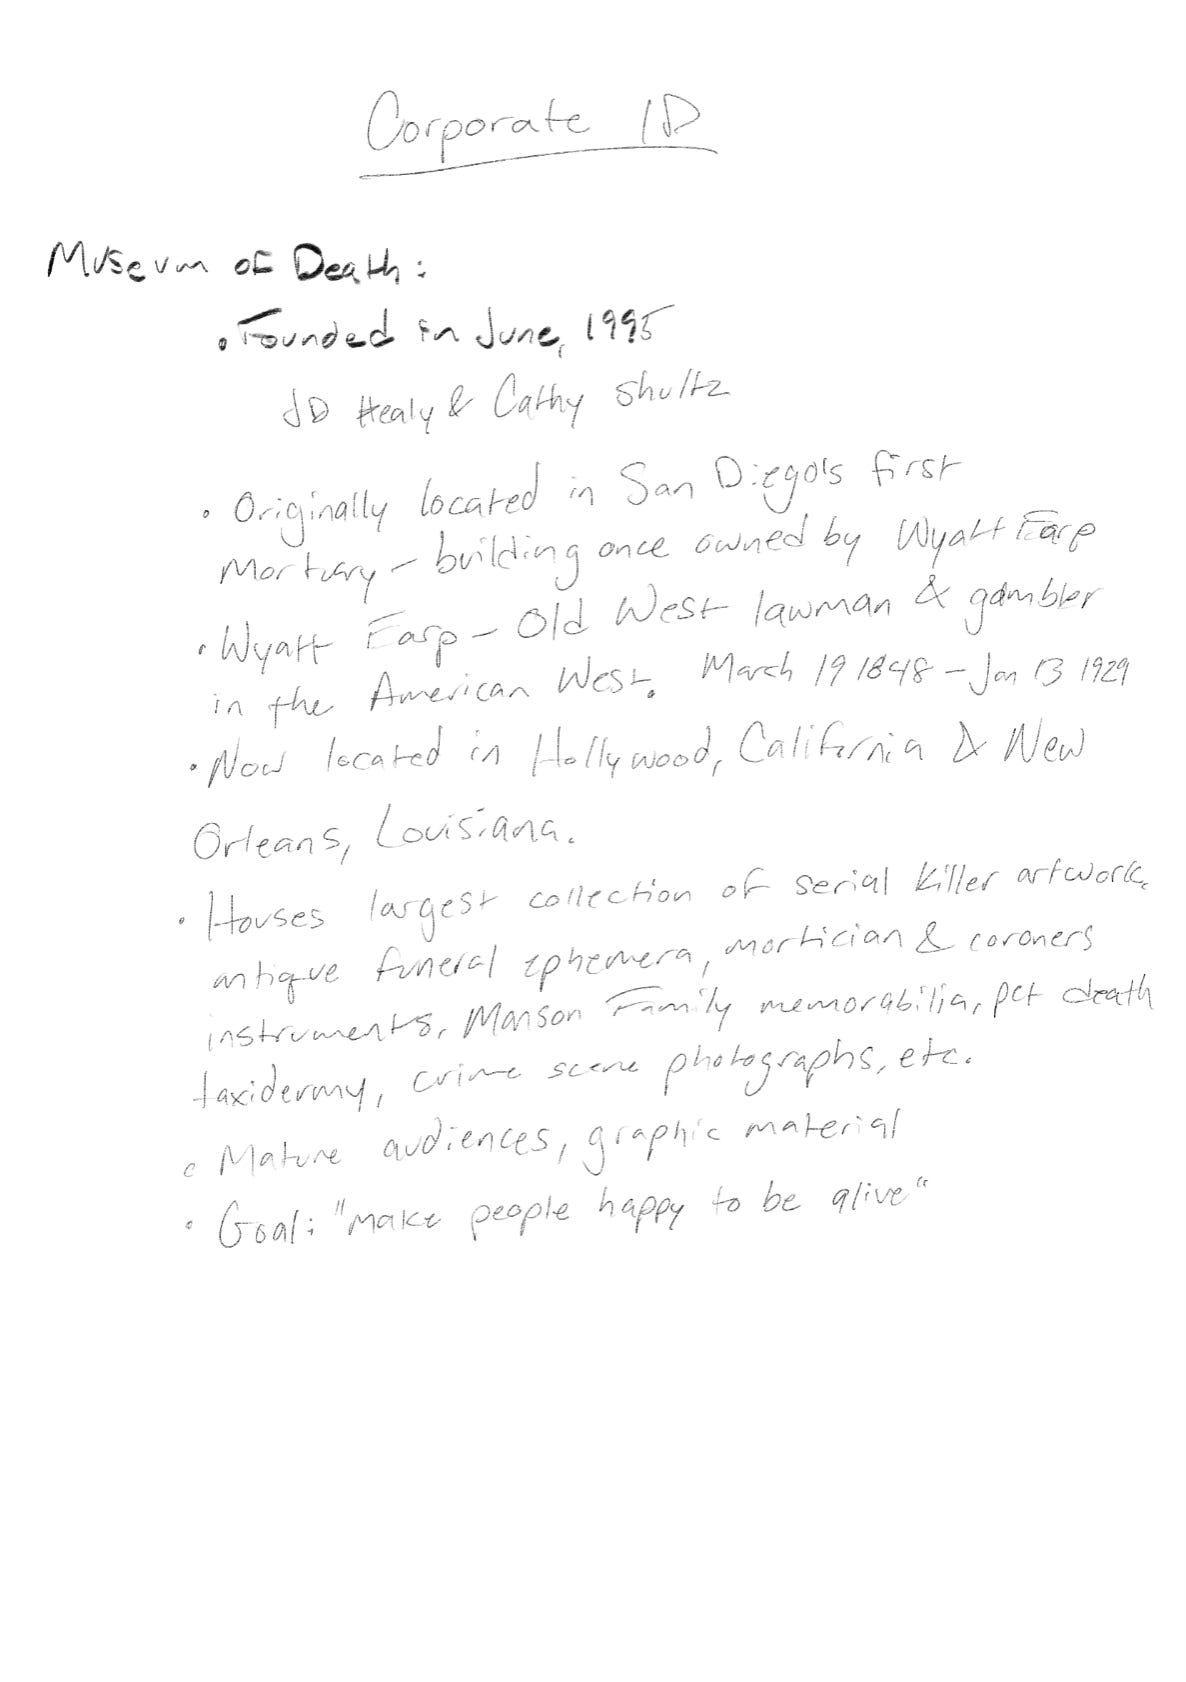 Corporate ID
Museum of Death:
• Founded in June, 1995
JD Healy & Cathy Shultz
• Originally located in San Diego's first
Mortuary – building once owned by Wyatt Earp
• Wyatt Earp – Old West lawman & gambler
in the American West. March 19 1848 – Jan 13 1929
• Now located in Hollywood, California & New
Orleans, Louisiana.
• Houses largest collection of serial killer artwork,
antique funeral ephemera, mortician & coroners
instruments, Manson Family memorabilia, pet death
taxidermy, crime scene photographs, etc.
• Mature audiences, graphic material
• Goal: "make people happy to be alive"